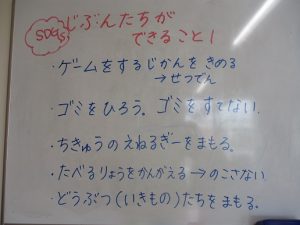 SDGs じぶんたちが
できること！
・ゲームをするじかんをきめる
→せつでん
・ゴミをひろう。ゴミをすてない.
・ちきゅうのえねるぎーをまもる。
・たべるりょうをかんがえる→のこさない
・どうぶつ(いきもの)たちをまもる。